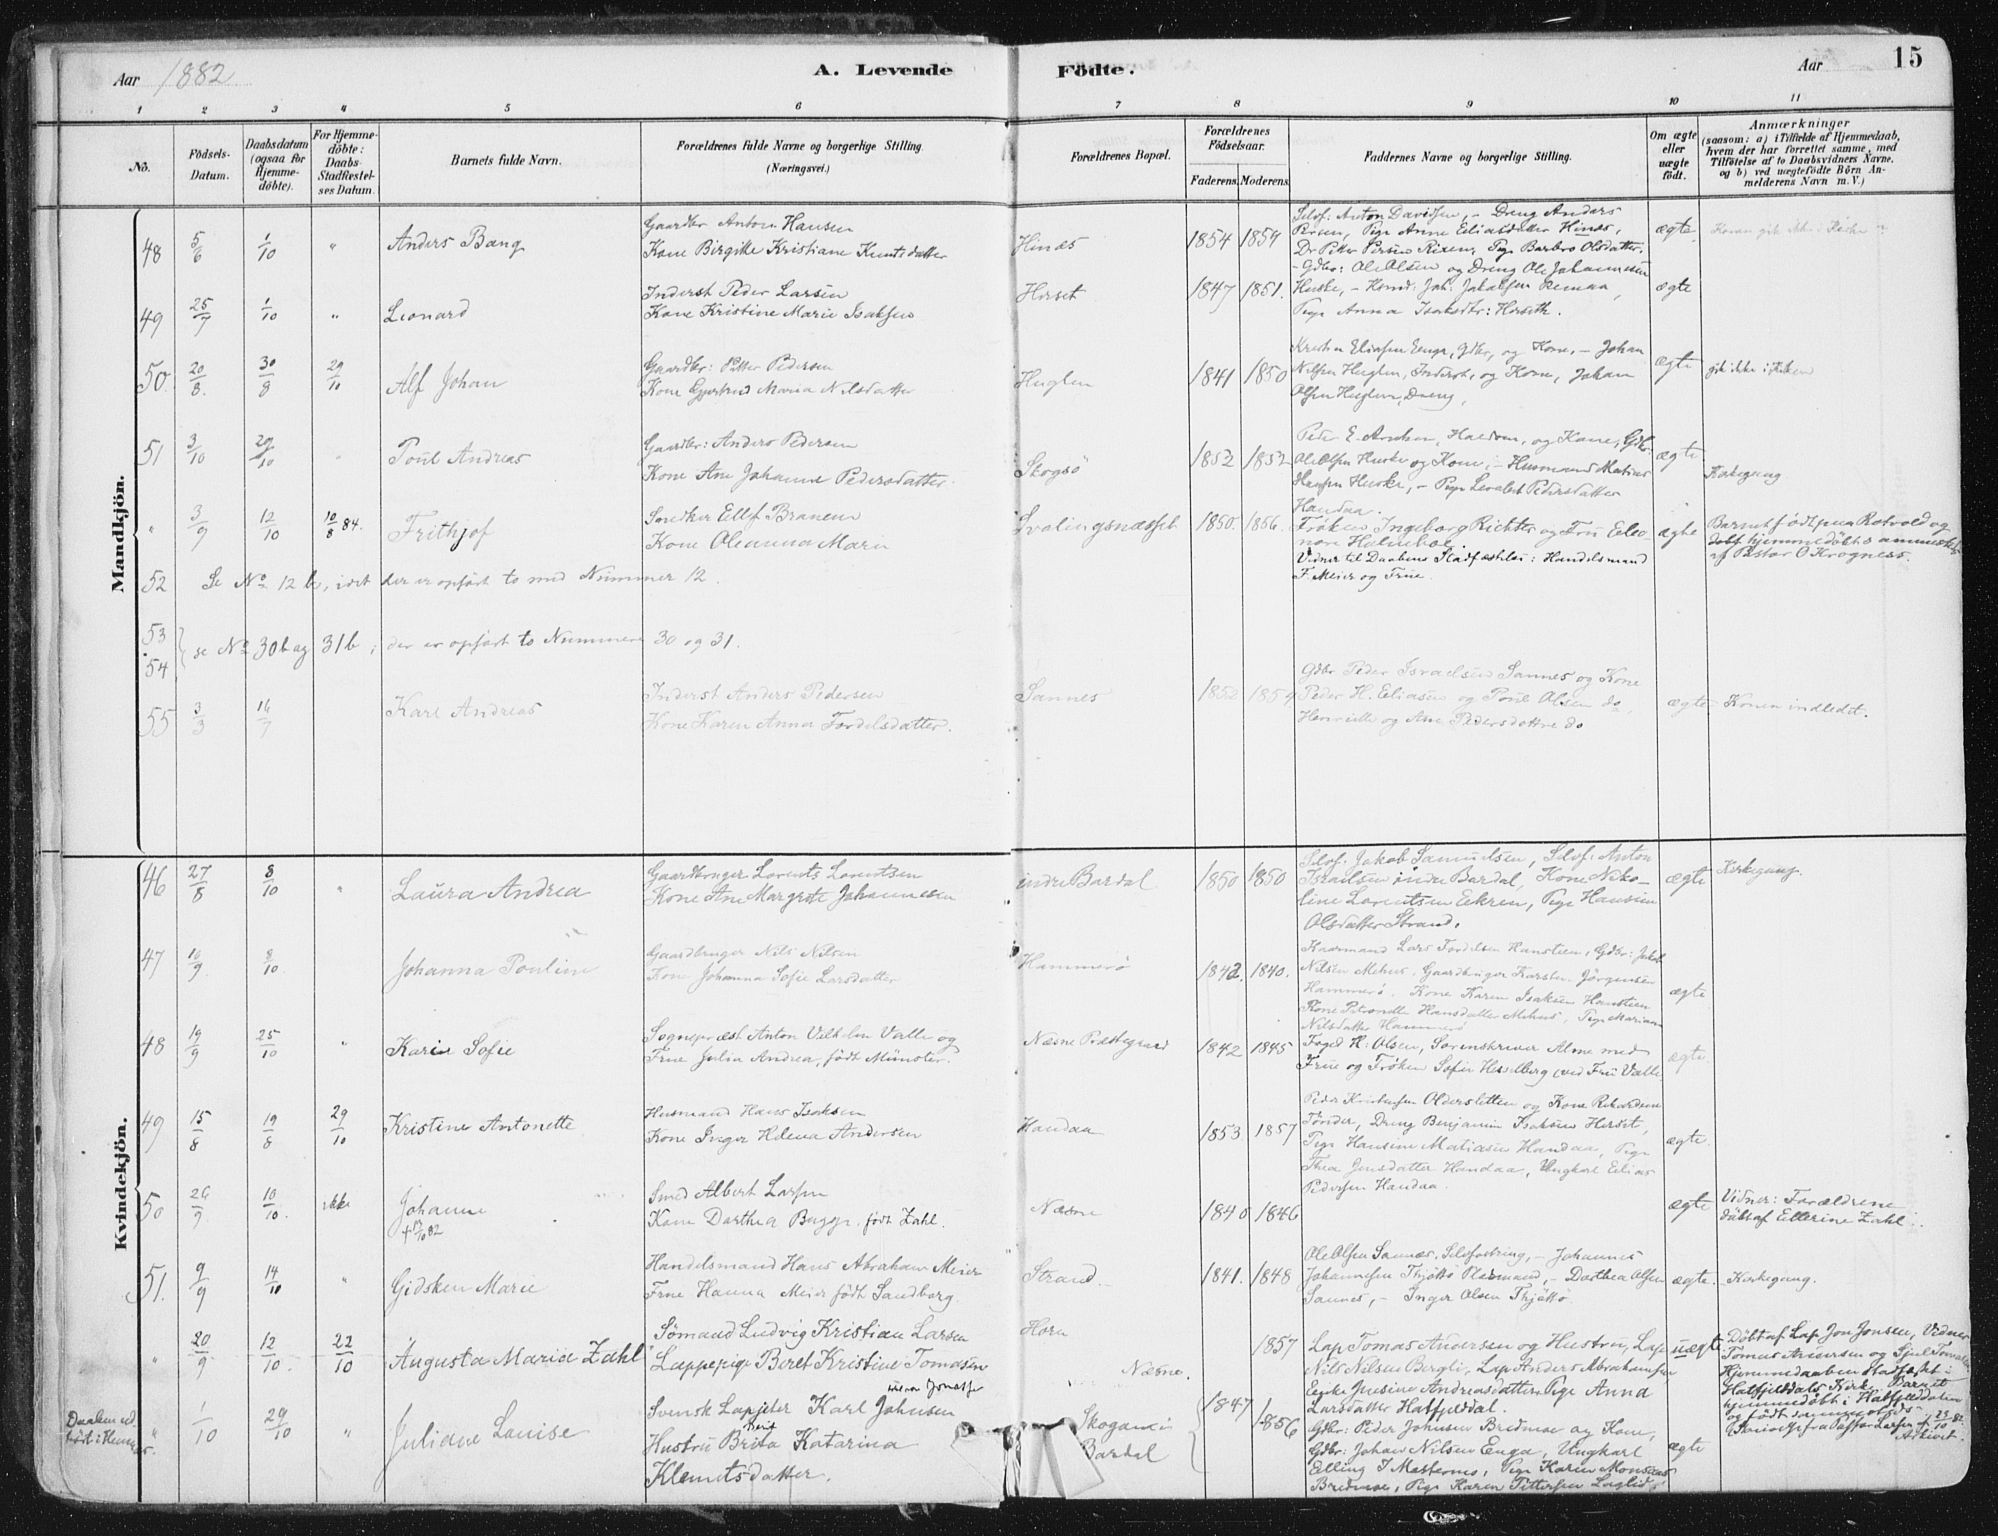 Aar 1882
A. Levende
Födte.
Aar
15
1 2 3 4 5 6 7 8 9 10 11
No.
Födsels-
Datum.
Daabsdatum
(ogsaa for
Hjemme-
döbte).
For Hjemme-
döbte:
Daabs-
Stadfæstel-
ses Datum.
Barnets fulde Navn.
Forældrenes fulde Navne og borgerlige Stilling
(Næringsvei.)
Forældrenes Bopæl.
Forældrenes
Födselsaar.
Faderens. Moderens.
Faddernes Navne og borgerlige Stilling.
Om ægte
eller
uægte
födt.
Anmærkninger
(saasom: a) i Tilfælde af Hjemmedaab,
hvem der har forrettet samme, med
Tilföielse af to Daabsvidners Navne.
og b) ved uægtefödte Börn An-
melderens Navn m. V.)
Mandkjön.
48 5/6 1/10 " Anders Bang
Gaardbr Anton Hansen
Kone Birgitte Kristiane Knutsdatter
Hinæs 1854 1859
Selvf: Anton Davidsen, - Dreng Anders
Persen, Pige Anne Eliasdatter Hinæs,
Dr Petter Persen Rixen, Pige Barbro Olsdatter.
ægte
49 25/7 1/10 " Leonard
Inderst Peder Larsen
Kone Kristine Marie Isaksen
Herset 1847 1851.
- Gdbr: Ole Olsen og Dreng Ole Johannesen
Huske, - Pige Anna Isaksdtr: Herseth.
ægte
50. 20/8. 30/8 29/10 Alf Johan
Gaardbr: Petter Pedersen
Kone Gjertrud Maria Nilsdatter
Huglen 1841 1850
Eliasen Enge, Gdbr, og Kone, - Johan
Nilsen Huglen, Inderst, og Kone, Johan
Olsen Huglen, Dreng,
ægte gik ikke i Kirken
51 3/10 29/10 " Poul Andreas
Gaardbr: Anders Pedersen
Kone Ane Johanna Pedersdatter.
Skogsö 1852 1852
Peder E. og Kone, Gdbr.
Ole Olsen Huske og Kone, - Husmand Matias
Hansen Huske, - Pige Pedersdatter
Handaa.
ægte Kirkegang
" 3/9 12/10 10/8 84. Frithjof
Snedker Ellef Branem
Kone Oleanna Marie
Svalingsnæsset 1850. 1856.
Fröken Ingeborg Richter og Fru Eleo
nore Holmboe.
Vidner til Daabens Stadfæstelse: Handelsmand
F. Meier og Frue.
ægte
Barnet födt paa Rotvold og
döbt hjemmedöbt sammesteds
af Pastor O Krogness.
52 Se No 12 b, idet der er opfört to med Nummer 12.
53
54 } se No 30b og 31b, der er opfört to Nummere 30 og 31.
55 3/3 16/7 Karl Andreas
Inderst Anders Pedersen
Kone Karen Anna Tordelsdatter.
Sannes 1852 1859.
Gdbr Peder Israelsen Sannes og Kone
Peder H. Eliasen og Poul Olsen do,
Henriette og Ane Pedersdottre do
ægte Konen indledet.
Kvindekjön.
46 27/8 8/10 " Laura Andrea
Gaardbruger Lorents Lorentsen
Kone Ane Margrete Johannesen
indre Bardal 1850 1850
Selvf: Jakob Samuelsen, Selvf: Anton
Israelsen indre Bardal, Kone Niko-
line Lorentsen Eekren, Pige Hansine
Olsdatter Strand.
ægte Kirkegang.
47 10/9 8/10. Johanna Pouline
Gaardbruger Nils Nilsen
Kone Johanna Sofie Larsdatter
Hammerö 1842. 1840.
Kaarmand Lars Tordelsen Hanstien, Gdbr: Jakob
Nilsen Mehus. Gaardbruger Karsten Jörgensen
Hammerö. Kone Karen Isaksen Hanstien
Kone Petronelle Hansdatter Mehus, Pige Mariane
Nilsdatter Hammerö
ægte
48 19/9 25/10 " Karin Sofie
Sogneprest Anton Vilhelm Valle og
Frue Julia Andrea, født Münster.
Næsne Præstegaard 1842 1845
Foged H: Olsen, Sorenskriver Alme med
Frue og Fröken Sofie Hesselberg (ved Fru Valle
ægte
49 15/8 19/8 29/10 Kristine Antonette
Husmand Hans Isaksen
Kone Inger Helena Andersen
Handaa 1853 1857
Peder Kristensen Oldersletten og Kone Rikardine
Tönder, Dreng Benjamin Isaksen Herset,
Pige Hansine Matiasen Handaa, Pige
Thea Jensdatter Handaa, Ungkarl Elias
Pedersen Handaa.
ægte.
50 26/9 10/10. ikke Johanne
Smed Albert Larsen
Kone Dorthea Bugge, født Zahl.
Næsne 1840 1846
ægte
Vidner: Forældrene
döbt af Ellerine Zahl.
51. 9/9 14/10 " Gidsken Marie
Handelsmand Hans Abraham Meier
Frue Hanna Meier født Sandberg.
Strand 1841. 1848
Ole Olsen Sannes, - Johannes
Johannesen Thjötto - Dorthea Olsen
Sannes, - Inger Olsen Thjöttö.
ægte. - Kirkegang.
" 20/9 12/10. 22/10 Augusta Maria Zahl
Sömand Ludvig Kristian Larsen
Lappepige Beret Kristine Tomasen
Horn
Næsne.
1857
Lap Tomas Andersen og Hustru, Lap
Nils Nilsen Bergli, Lap Anders Abrahamsen
Enke Jensine Andreasdatter, Pige Anna
Larsdatter Hatfjelddal.
uægte
Döbt af Lap Jon Jonsen, Vidner
Tomas Andersen og
Hjemmedaaben stadfæstet i
Hatfjelddals Kirke. Barnet
hjemmedöbt i Hatfjelddalen
og födt sammesteds -
" 1/10 29/10 " Juliane Louise
Svensk Lapjeter Karl Johnsen
Hustru Brita Katarina
Klemetsdatter.
Skogan i
Bardal
1847 1856
Gdbr: Peder Johnsen Bredmoe og Kone,
Gdbr: Johan Nilsen Enga, Ungkarl
Elling J Mastermo, Pige Karen Monsdas
Bredmoe, Pige Karen Pettersen
ægte